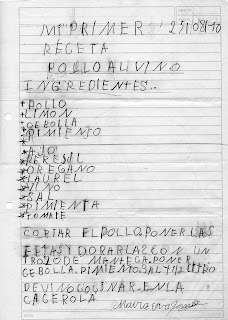 MI PRIMER 25/08/10
RECETA
POLLO AL VINO
INGREDIENTES..
*POLLO
*LIMON
*CEBOLLA
*PIMIENTO
*AJO
*PEREJIL
*OREGANO
*LAUREL
*VINO
*SAL
*PIMIENTA
*TOMATE
CORTAR EL POLLO, PONER LAS
DORARLAS CON UN
TROZO DE MANTECA. PONER
CEBOLLA. PIMIENTO SAL Y LITRO
DE VINO COCINAR EN LA
CACEROLA